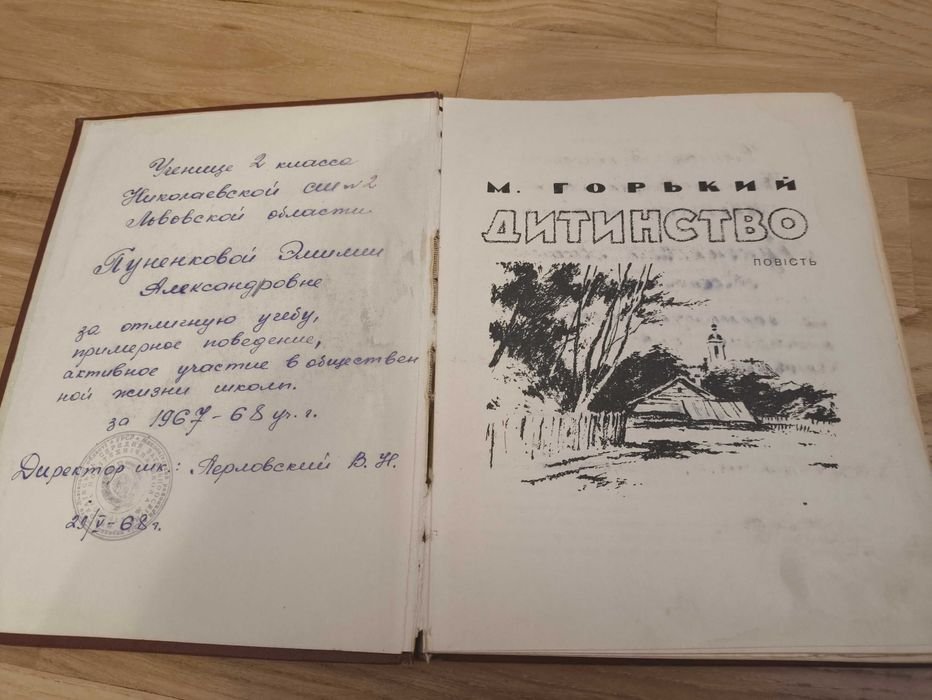 Ученице 2 класса
Николаевской сш №2
Львовской области
Пуненковой Эмилии
Александровне
за отличную учебу,
примерное поведение,
активное участие в обществен
ной жизни школы.
за 1967-68 уч. г.
Директор шк.: Перловский В. Н.
29/V-68 г.
М. ГОРЬКИЙ
ДИТИНСТВО
ПОВІСТЬ